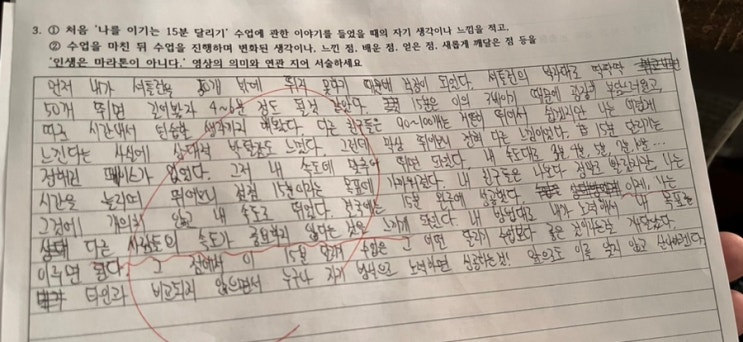 3. ① 처음 '나를 이기는 15분 달리기' 수업에 관한 이야기를 들었을 때의 자기 생각이나 느낌을 적고,
② 수업을 마친 뒤 수업을 진행하며 변화된 생각이나, 느낀 점, 배운 점, 얻은 점, 새롭게 깨달은 점 등을
'인생은 마라톤이 아니다.' 영상의 의미와 연관 지어 서술하세요
먼저 내가 셔틀런을 50개 밖에 뛰지 못하기 때문에 걱정이 되었다. 셔틀런의 박자대로 딱딱딱
50개 뛰면 길어봤자 4~6분 정도 될것 같았다. 15분은 이의 3배이기 때문에 굉장히 부담스러웠고,
따로 시간내서 연습할 생각까지 해봤다. 다른 친구들은 90~100개는 거뜬히 뛰어서 쉽겠지만 나는 어렵게
느낀다는 사실에 상대적 박탈감도 느꼈다. 그런데 막상 뛰어보니 전혀 다른 느낌이었다. 15분 달리기는
정해진 페이스가 없었다. 그저 내 속도에 맞추어 뛰면 되었다. 내 속도대로 3분, 4분, 5분, 7분, 8분 …
시간을 늘리며 뛰어보니 점점 15분이라는 목표에 가까워졌다. 내 친구들은 나보다 점점 빨라지만, 나는
그것에 개의치 않고 내 속도로 뛰었다. 결국에는 15분 완주에 성공했다. 이제, 나는
다른 사람들의 속도가 중요하지 않다는 것을 느끼게 되었다. 내 방법대로 내가 노력해서 내 목표를
이루면 된다. 그 점에서 이 15분 달리기 수업은 그 어떤 달리기 수업보다 좋은 것이라는걸 깨달았다.
타인과 비교되지 않으면서 누구나 자기 방식으로 노력하면 성공하는것! 앞으로도 이를 잊지 않고 살아가겠다